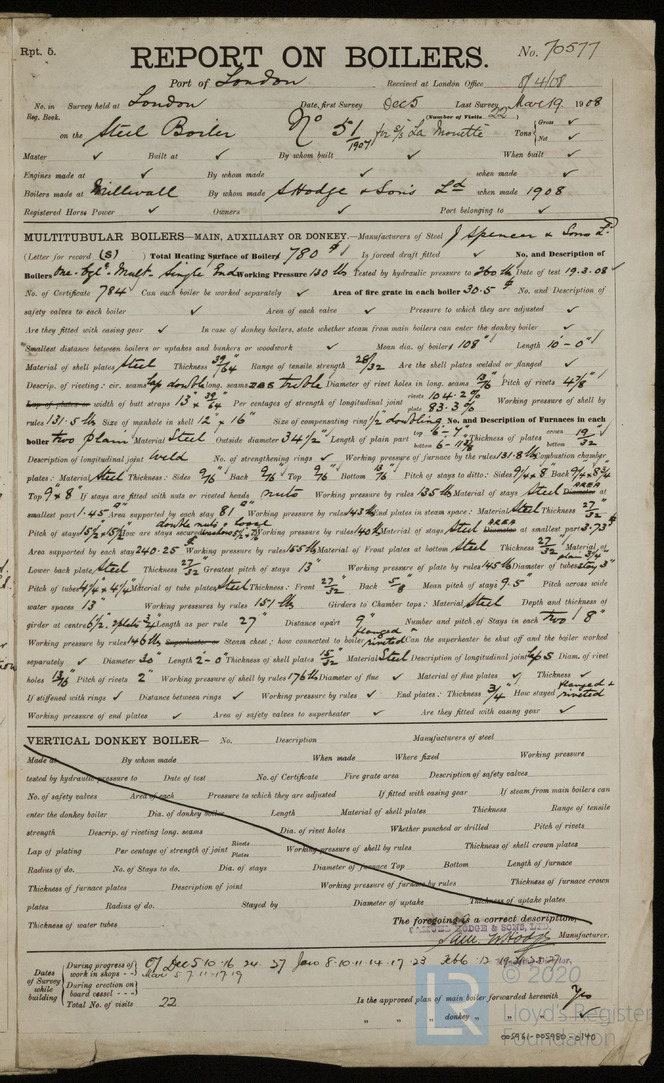 Rpt. 5.
REPORT ON BOILERS. No. 70577
Port of London Received at London Office 8/4/08
No. in Survey held at London Date, first Survey Dec 5 Last Survey Mar 19 1908
Reg. Book. (Number of Visits 22)
on the Steel Boiler No 51 1907 for s/s La Mouette Tons Gross ✓ Net ✓
Master ✓ Built at ✓ By whom built ✓ When built ✓
Engines made at ✓ By whom made ✓ when made ✓
Boilers made at Millwall By whom made S Hodge & Sons Ld when made 1908
Registered Horse Power ✓ Owners ✓ Port belonging to ✓
MULTITUBULAR BOILERS—MAIN, AUXILIARY OR DONKEY.—Manufacturers of Steel J Spencer & Sons Ld
(Letter for record (S) ) Total Heating Surface of Boilers 780 Is forced draft fitted ✓ No. and Description of
Boilers One Cyl. Mult. Single End Working Pressure 130 lb Tested by hydraulic pressure to 260 lb Date of test 19.3.08
No. of Certificate 784 Can each boiler be worked separately ✓ Area of fire grate in each boiler 30.5 No. and Description of
safety valves to each boiler ✓ Area of each valve ✓ Pressure to which they are adjusted ✓
Are they fitted with easing gear ✓ In case of donkey boilers, state whether steam from main boilers can enter the donkey boiler ✓
Smallest distance between boilers or uptakes and bunkers or woodwork ✓ Mean dia. of boilers 108" Length 10'-0"
Material of shell plates Steel Thickness 39/64 Range of tensile strength 28/32 Are the shell plates welded or flanged ✓
Descrip. of riveting: cir. seams Lap double long. seams DBS treble Diameter of rivet holes in long. seams 13/16 Pitch of rivets 4 7/8"
Lap of plates or width of butt straps 13" × 39/64" Per centages of strength of longitudinal joint rivets 104.2% plate 83.3% Working pressure of shell by
rules 131.5 lb Size of manhole in shell 12" × 16" Size of compensating ring 1/2 doubling No. and Description of Furnaces in each
boiler two plain Material Steel Outside diameter 34 1/2" Length of plain part top 6'-7" bottom Thickness of plates crown bottom 19/32
Description of longitudinal joint Weld No. of strengthening rings ✓ Working pressure of furnace by the rules 131.8 lb Combustion chamber
plates: Material Steel Thickness: Sides 9/16 Back 9/16 Top 9/16 Bottom 13/16 Pitch of stays to ditto: Sides 9 1/4 × 8 Back 9 1/4 × 8 3/4
Top 9 × 8 If stays are fitted with nuts or riveted heads nuts Working pressure by rules 135 lb Material of stays Steel Diameter AREA at
smallest part 1.45 Area supported by each stay 81 Working pressure by rules 143 lb End plates in steam space: Material Steel Thickness 27/32
Pitch of stays 15 1/2 × 15 1/2 How are stays secured double nuts & loose washers Working pressure by rules 140 lb Material of stays Steel Diameter AREA at smallest part 3.73
Area supported by each stay 240.25 Working pressure by rules 155 lb Material of Front plates at bottom Steel Thickness 27/32 Material of
Lower back plate Steel Thickness 27/32 Greatest pitch of stays 13" Working pressure of plate by rules 145 lb Diameter of tubes plain 3 1/4" stay 3"
Pitch of tubes 4 1/4 × 4 1/4 Material of tube plates Steel Thickness: Front 27/32 Back 5/8 Mean pitch of stays 9.5" Pitch across wide
water spaces 13" Working pressures by rules 151 lb Girders to Chamber tops: Material Steel Depth and thickness of
girder at centre 6 1/2. 2 plates Length as per rule 27" Distance apart 9" Number and pitch of Stays in each two 8"
Working pressure by rules 146 lb Superheater or Steam chest; how connected to boiler flanged riveted Can the superheater be shut off and the boiler worked
separately ✓ Diameter 30" Length 2'-0" Thickness of shell plates 15/32 Material Steel Description of longitudinal joint Lap S Diam. of rivet
holes 13/16 Pitch of rivets 2" Working pressure of shell by rules 176 lb Diameter of flue ✓ Material of flue plates ✓ Thickness ✓
If stiffened with rings ✓ Distance between rings ✓ Working pressure by rules ✓ End plates: Thickness 3/4" How stayed flanged & riveted
Working pressure of end plates ✓ Area of safety valves to superheater ✓ Are they fitted with easing gear ✓
VERTICAL DONKEY BOILER— No. Description Manufacturers of steel
Made at By whom made When made Where fixed Working pressure
tested by hydraulic pressure to Date of test No. of Certificate Fire grate area Description of safety valves
No. of safety valves Area of each Pressure to which they are adjusted If fitted with easing gear If steam from main boilers can
enter the donkey boiler Dia. of donkey boiler Length Material of shell plates Thickness Range of tensile
strength Descrip. of riveting long. seams Dia. of rivet holes Whether punched or drilled Pitch of rivets
Lap of plating Per centage of strength of joint Rivets Plates Working pressure of shell by rules Thickness of shell crown plates
Radius of do. No. of Stays to do. Dia. of stays Diameter of furnace Top Bottom Length of furnace
Thickness of furnace plates Description of joint Working pressure of furnace by rules Thickness of furnace crown
plates Radius of do. Stayed by Diameter of uptake Thickness of uptake plates
Thickness of water tubes The foregoing is a correct description,
SAMUEL HODGE & SONS, LTD.
Saml W Hodge Manufacturer.
Dates of Survey while building
During progress of work in shops - - 07 Dec 5. 10. 16. 24. 27 Jan 8. 10. 11. 14. 17. 23 Feb 6. 12. 19. 21. 25. 27
Mar 5. 7. 11. 17. 19
During erection on board vessel - - -
Total No. of visits 22 Is the approved plan of main boiler forwarded herewith Yes
" " " donkey " " " ✓
© 2020
LR Lloyd's Register
Foundation
005961-005980-0140